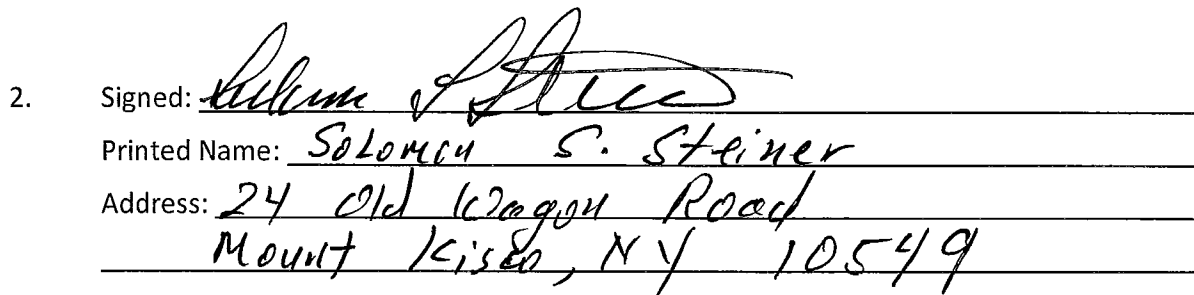 2. Signed: Solomon S Steiner
Printed Name: Solomon S. Steiner
Address: 24 Old Wagon Road
Mount Kisco, NY 10549